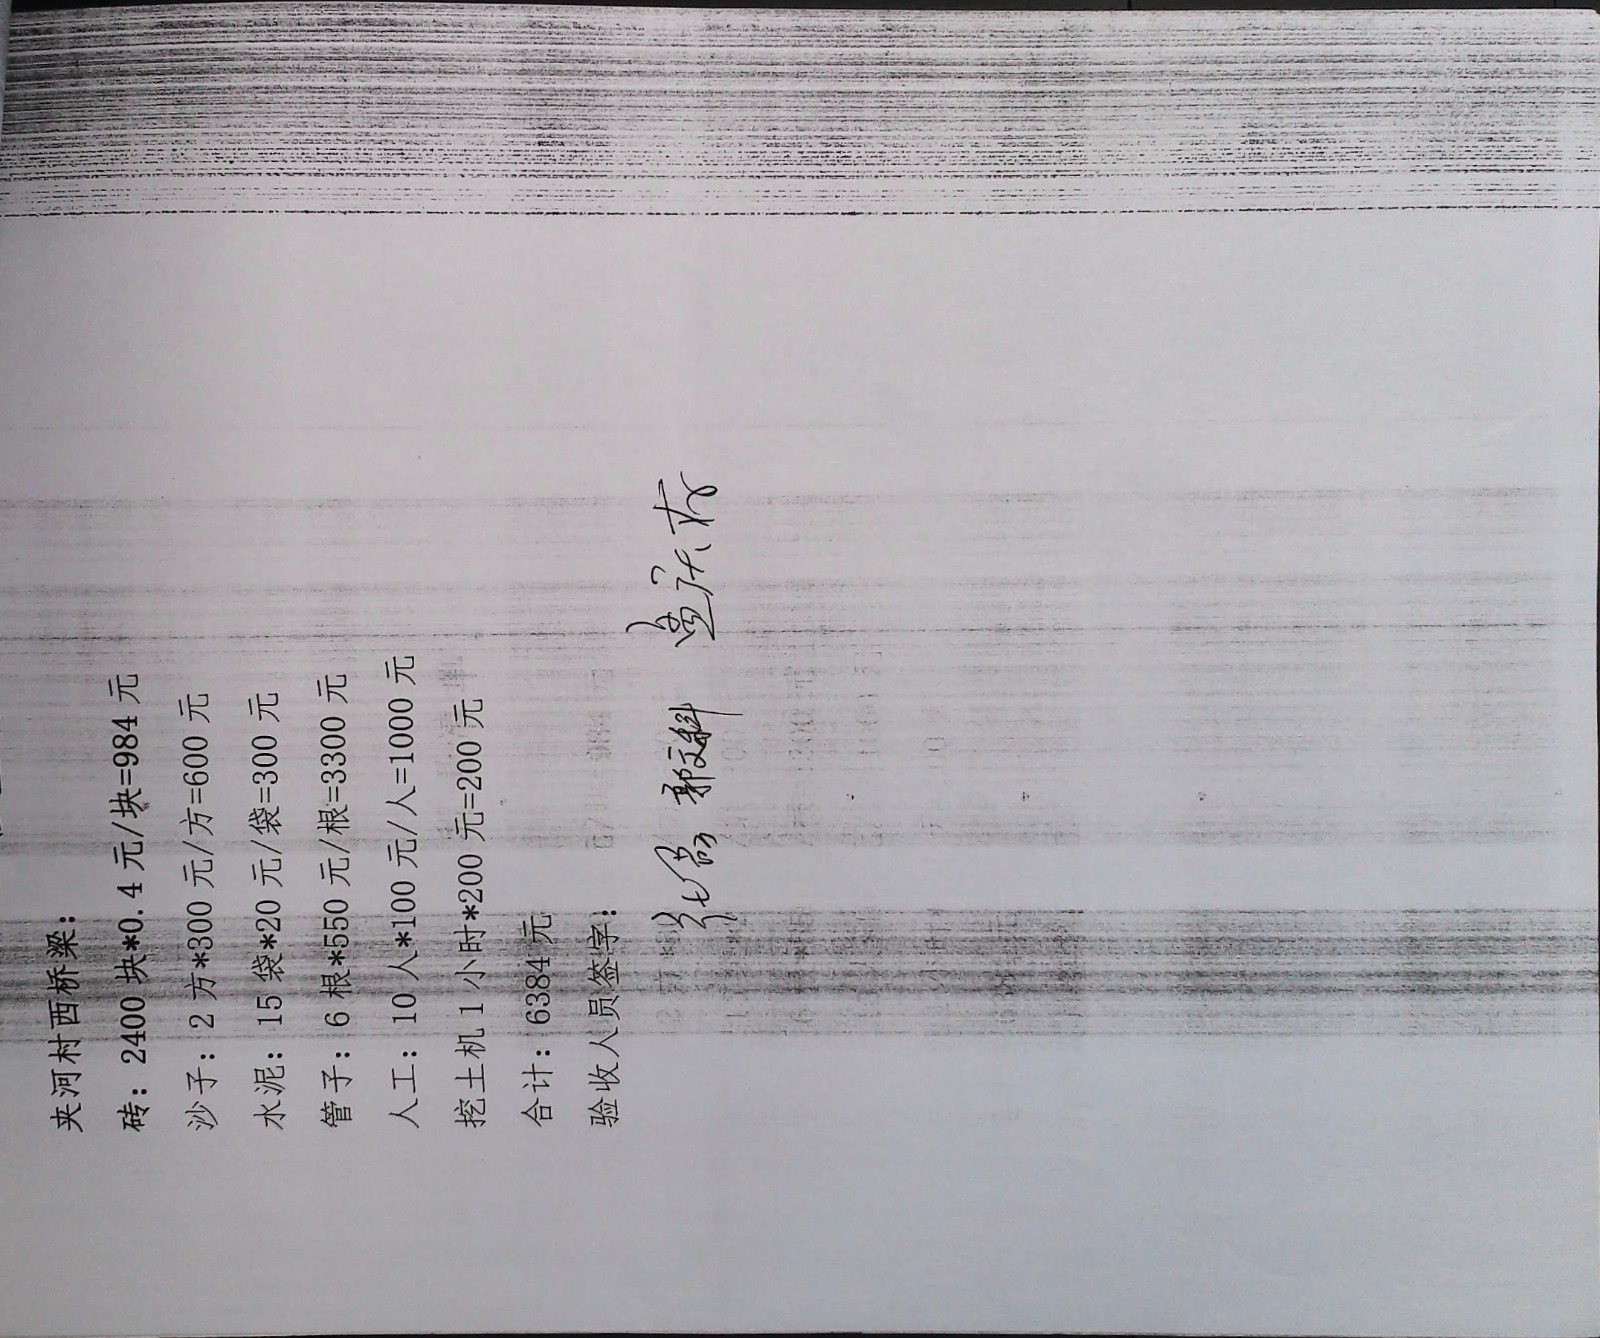 夹河村西桥梁：
砖：2400 块*0.4 元/块=984 元
沙子：2 方*300 元/方=600 元
水泥：15 袋*20 元/袋=300 元
管子：6 根*550 元/根=3300 元
人工：10 人*100 元/人=1000 元
挖土机 1 小时*200 元=200 元
合计：6384 元
验收人员签字：
郭文科